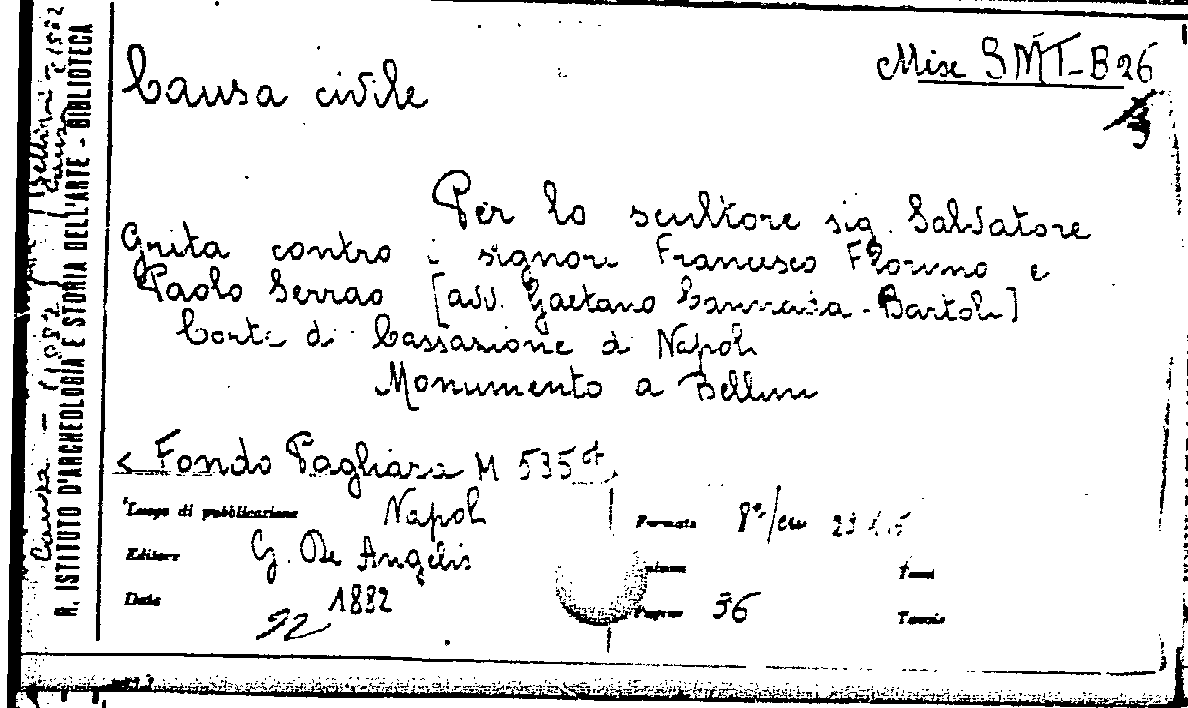 Misc SMT-B26
Causa civile
Per lo scultore sig. Salvatore
Grita contro i signori Francesco Florimo e
Paolo Serrao [avv. Gaetano -Bartoli]
Corte di Cassazione di Napoli
Monumento a Bellini
< Fondo Pagliara M 535
Luogo di pubblicazione Napoli
Formato 8°/cm
Editore G. De Angelis
Volume Tomi
Data 1882
Pagine 36 Tavole
22
R. ISTITUTO D'ARCHEOLOGIA E STORIA DELL'ARTE - BIBLIOTECA
Causa - (1882)